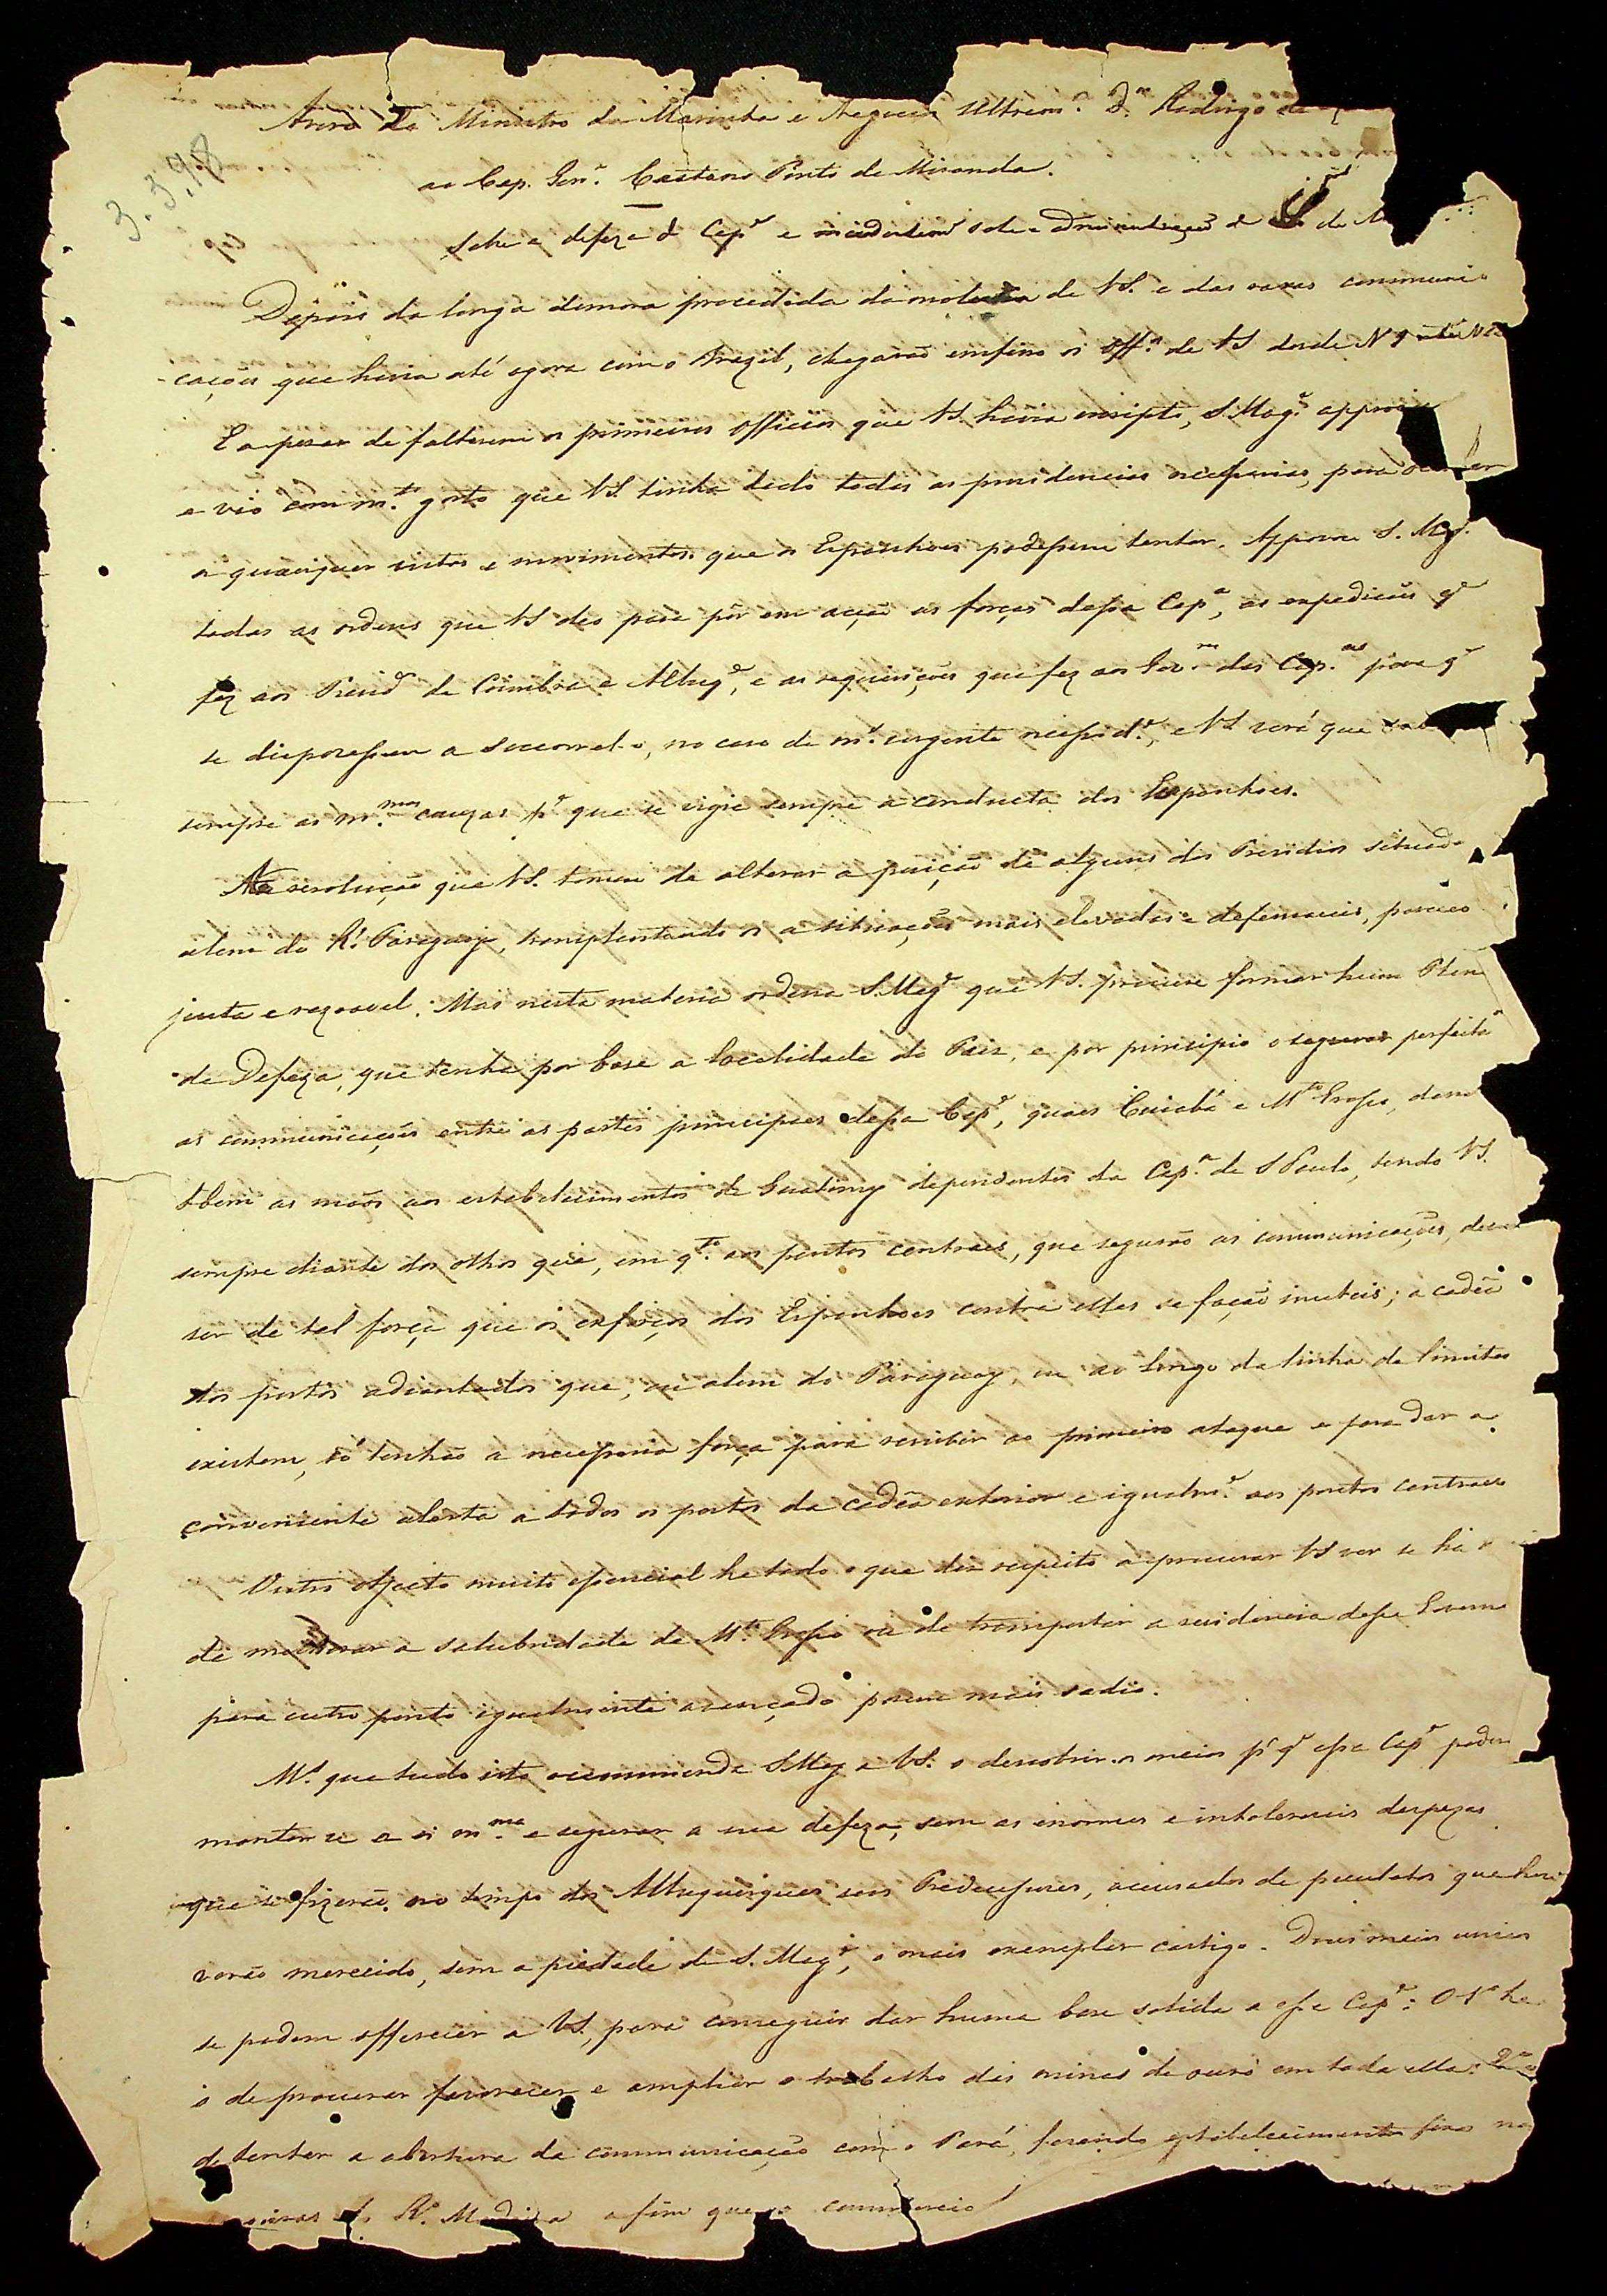 Aviso do Ministro da Marinha e Negocios Ultram.ª D.ⁿ Rodrigo de
ao Cap. Gen.ˡ Caetano Pinto de Miranda.
3.3.98
sobre a defeza d Cap.ª e sobre a administração d de
Depois da longa demora procedida da molestia de VS. e das raras communi
cações que havia até agora com o Brazil, chegarão emfim os Off.ˢ de VS desde Nº 9 até Nº
E apezar de faltarem os primeiros officios que VS. havia escripto, S. Mag.ᵉ approva
e vio com m.ᵗᵒ gosto que VS. tinha dado todas as providencias necessarias, para
a quaesquer vistas e movimentos que os Espanhoes podessem tentar. Approva S. Mag.ᵉ
todas as ordens que VS deo para pôr em acção as forças dessa Cap.ª, as expedições qᵉ
fez aos Presid.ˢ de Coimbra e Albuq.ᵉ, e as requisições que fez aos Gov.ʳᵉˢ das Cap.ªˢ para qᵉ
se dispozessem a soccorrel-o, no caso de m.ᵗᵒ urgente necessid.ᵉ, e VS verá que
sempre as m.ᵐᵃˢ cauzas pª que se vigie sempre a conducta dos Espanhoes.
A resolução que VS. tomou de alterar a posição de alguns dos Presidios situad
alem do R.º Paraguay, transplantando os a situações mais elevadas e defensaveis, pareceo
justa e razoavel. Mas nesta materia ordena S. Mag.ᵉ que VS. procure formar hum Plan
de Defeza, que tenha por base a localidade do Paiz, e por principio o segurar perfeitª
as communicações entre as partes principaes dessa Cap.ª, quaes Cuiabá e M.ᵗᵒ Grosso, dan
tbem as mãos aos estabelecimentos de Guatimy dependentes da Cap.ª de S Paulo, tendo VS.
sempre diante dos olhos que, em q.ᵗᵒ aos pontos centraes, que segurão as communicações, devem
ser de tal força que os esforços dos Espanhoes contra elles se fação inuteis; a cadêa
dos postos adiantados que, ou alem do Paraguay, ou ao longo da linha de limites
existem, só tenhão a necessaria força para resistir ao primeiro ataque e para dar o
conveniente alerta a todos os postos da cadêa exterior e igualm.ᵉ aos pontos centraes
Outro objecto muito essencial he todo o que diz respeito a procurar VS ver se ha
de melhorar a salubridade de M.ᵗᵒ Grosso ou de transportar a residencia desse Govern
para outro ponto igualmente avançado porem mais sadio.
M.ˢ que tudo isto recommenda S. Mag a VS. o descobrir os meios pª qᵉ essa Cap.ª poder
manter-se a si m.ᵐᵃ e segurar a sua defeza, sem as enormes e intoleraveis despezas
que se fizerão no tempo dos Albuquerques seus Predecessores, accusados de peculatos que hou
verão merecido, sem a piedade de S. Mag.ᵉ, o mais exemplar castigo. Dous meios unicos
se podem offerecer a VS, para conseguir dar huma base solida a essa Cap.ª: O 1º he
o de procurar favorecer e ampliar o trabalho das minas de ouro em toda ella: 2º
de tentar a abertura da communicação com o Pará, fazendo estabelecimentos fixos na
R.º Madeira a fim que o commercio